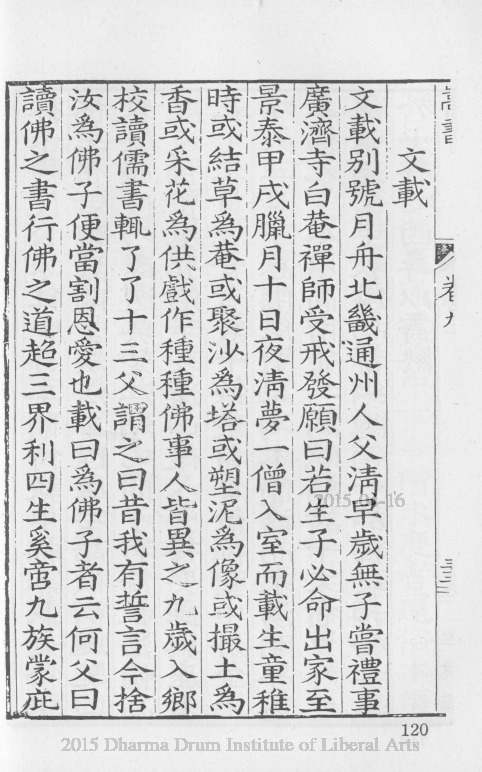 卷九
文載
文載別號月舟北畿通州人父淸早歲無子嘗禮事
廣濟寺白菴禪師受戒發願曰若生子必命出家至
景泰甲戌臘月十日夜淸夢一僧入室而載生童稚
時或結草爲菴或聚沙爲塔或塑泥爲像或撮土爲
香或采花爲供戲作種種佛事人皆異之九歲入鄉
校讀儒書輒了了十三父謂之曰昔我有誓言今捨
汝爲佛子便當割恩愛也載曰爲佛子者云何父曰
讀佛之書行佛之道超三界利四生奚啻九族蒙庇
120
2015 Dharma Drum Institute of Liberal Arts